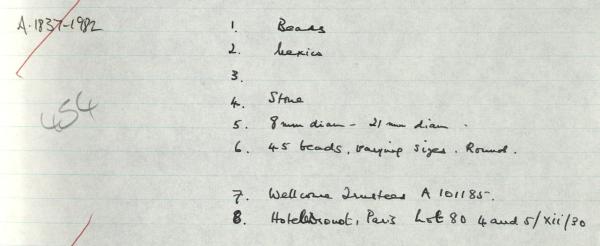 A.1837-1982
454
1. Beads
2. Mexico
3.
4. Stone
5. 8mm diam - 21mm diam.
6. 45 beads, varying sizes. Round.
7. Wellcome Trustees A 101185.
8. Hotel Drouot, Paris Lot 80 4 and 5/xii/30